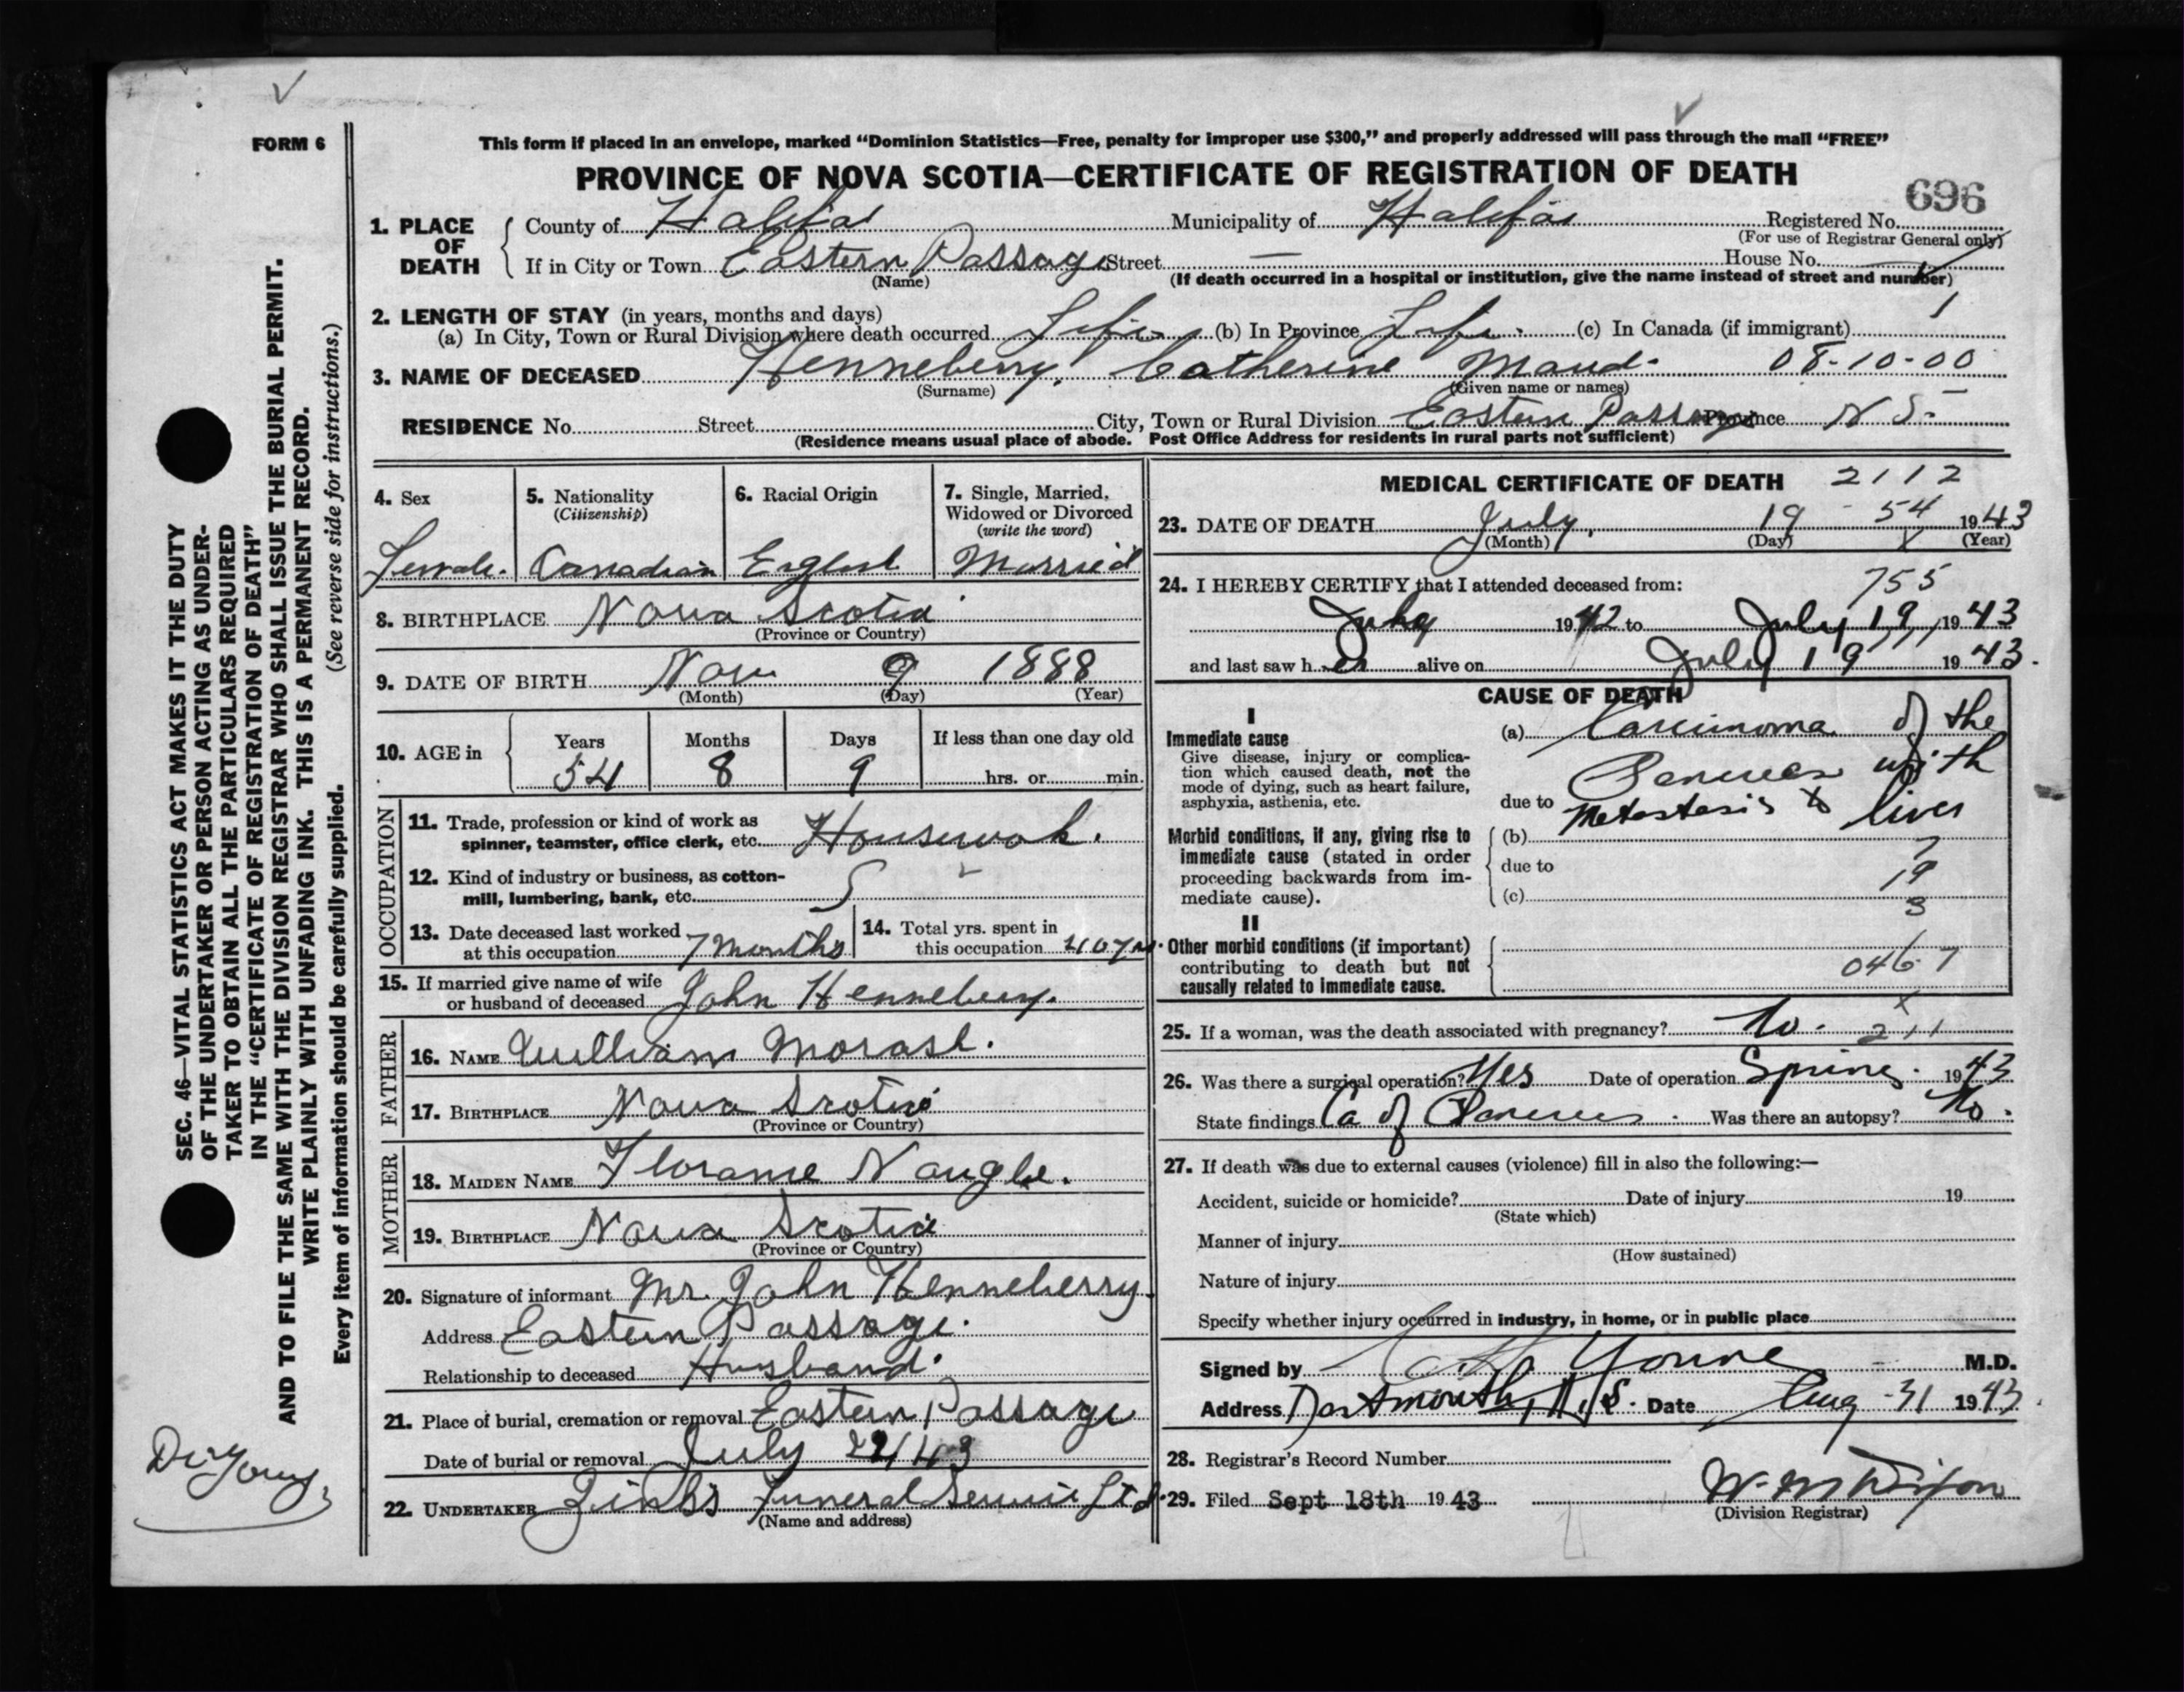 FORM 6
This form if placed in an envelope, marked "Dominion Statistics—Free, penalty for improper use $300," and properly addressed will pass through the mail "FREE"
PROVINCE OF NOVA SCOTIA—CERTIFICATE OF REGISTRATION OF DEATH
696
1. PLACE OF DEATH County of Halifax Municipality of Halifax Registered No.
(For use of Registrar General only)
If in City or Town Eastern Passage Street — House No.
(Name) (If death occurred in a hospital or institution, give the name instead of street and number)
2. LENGTH OF STAY (in years, months and days)
(a) In City, Town or Rural Division where death occurred Life (b) In Province Life (c) In Canada (if immigrant)
3. NAME OF DECEASED Henneberry, Catherine Maud 08-10-00
(Surname) (Given name or names)
RESIDENCE No. Street City, Town or Rural Division Eastern Passage Province N S
(Residence means usual place of abode. Post Office Address for residents in rural parts not sufficient)
4. Sex
Female.
5. Nationality
(Citizenship)
Canadian
6. Racial Origin
English
7. Single, Married, Widowed or Divorced
(write the word)
Married
8. BIRTHPLACE Nova Scotia
(Province or Country)
9. DATE OF BIRTH Nov 9 1888
(Month) (Day) (Year)
10. AGE in Years Months Days If less than one day old
54 8 9 hrs. or min.
OCCUPATION
11. Trade, profession or kind of work as
spinner, teamster, office clerk, etc. Housework.
12. Kind of industry or business, as cotton-
mill, lumbering, bank, etc.
13. Date deceased last worked
at this occupation 7 months
14. Total yrs. spent in
this occupation
15. If married give name of wife
or husband of deceased John Henneberry.
FATHER
16. NAME William Morash.
17. BIRTHPLACE Nova Scotia
(Province or Country)
MOTHER
18. MAIDEN NAME Florance Naugle.
19. BIRTHPLACE Nova Scotia
(Province or Country)
20. Signature of informant Mr. John Henneberry
Address Eastern Passage.
Relationship to deceased Husband.
21. Place of burial, cremation or removal Eastern Passage
Date of burial or removal July
22. UNDERTAKER Zink's Funeral Service Ltd.
(Name and address)
MEDICAL CERTIFICATE OF DEATH 2112
23. DATE OF DEATH July, 19 54 1943
(Month) (Day) (Year)
24. I HEREBY CERTIFY that I attended deceased from:
755
July 1942 to July 19, 1943
and last saw her alive on July 19 1943.
CAUSE OF DEATH
I
Immediate cause
Give disease, injury or complica-
tion which caused death, not the
mode of dying, such as heart failure,
asphyxia, asthenia, etc.
(a) Carcinoma of the
Pancreas with
due to Metastasis to liver
Morbid conditions, if any, giving rise to
immediate cause (stated in order
proceeding backwards from im-
mediate cause).
(b)
7
due to
19
(c)
3
II
Other morbid conditions (if important)
contributing to death but not
causally related to immediate cause.
046-7
25. If a woman, was the death associated with pregnancy? No. 211
26. Was there a surgical operation? Yes Date of operation Spring 1943
State findings Ca of Pancreas. Was there an autopsy? No.
27. If death was due to external causes (violence) fill in also the following:—
Accident, suicide or homicide? Date of injury 19
(State which)
Manner of injury
(How sustained)
Nature of injury
Specify whether injury occurred in industry, in home, or in public place
Signed by Young M.D.
Address Dartmouth, N.S. Date Aug 31 1943
28. Registrar's Record Number
29. Filed Sept 18th 1943
(Division Registrar)
SEC. 46—VITAL STATISTICS ACT MAKES IT THE DUTY
OF THE UNDERTAKER OR PERSON ACTING AS UNDER-
TAKER TO OBTAIN ALL THE PARTICULARS REQUIRED
IN THE "CERTIFICATE OF REGISTRATION OF DEATH"
AND TO FILE THE SAME WITH THE DIVISION REGISTRAR WHO SHALL ISSUE THE BURIAL PERMIT.
WRITE PLAINLY WITH UNFADING INK. THIS IS A PERMANENT RECORD.
Every item of information should be carefully supplied. (See reverse side for instructions.)
Dr Young